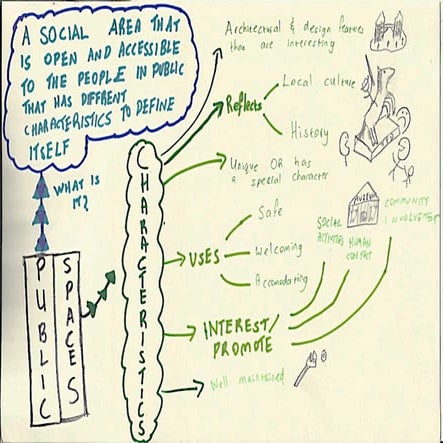 A SOCIAL AREA THAT
IS OPEN AND ACCESSIBLE
TO THE PEOPLE IN PUBLIC
THAT HAS DIFFRENT
CHARACTERISTICS TO DEFINE
ITSELF
WHAT IS
IT?
PUBLIC
SPACES
CHARACTERISTICS
Architectural & design features
that are interesting
Reflects
Local culture
History
Unique OR has
a special character
USES
Safe
Welcoming
Accomodating
INTEREST/
PROMOTE
SOCIAL
ACTIVITIES
HUMAN
CONTACT
COMMUNITY
INVOLVEMENT
Well maintained